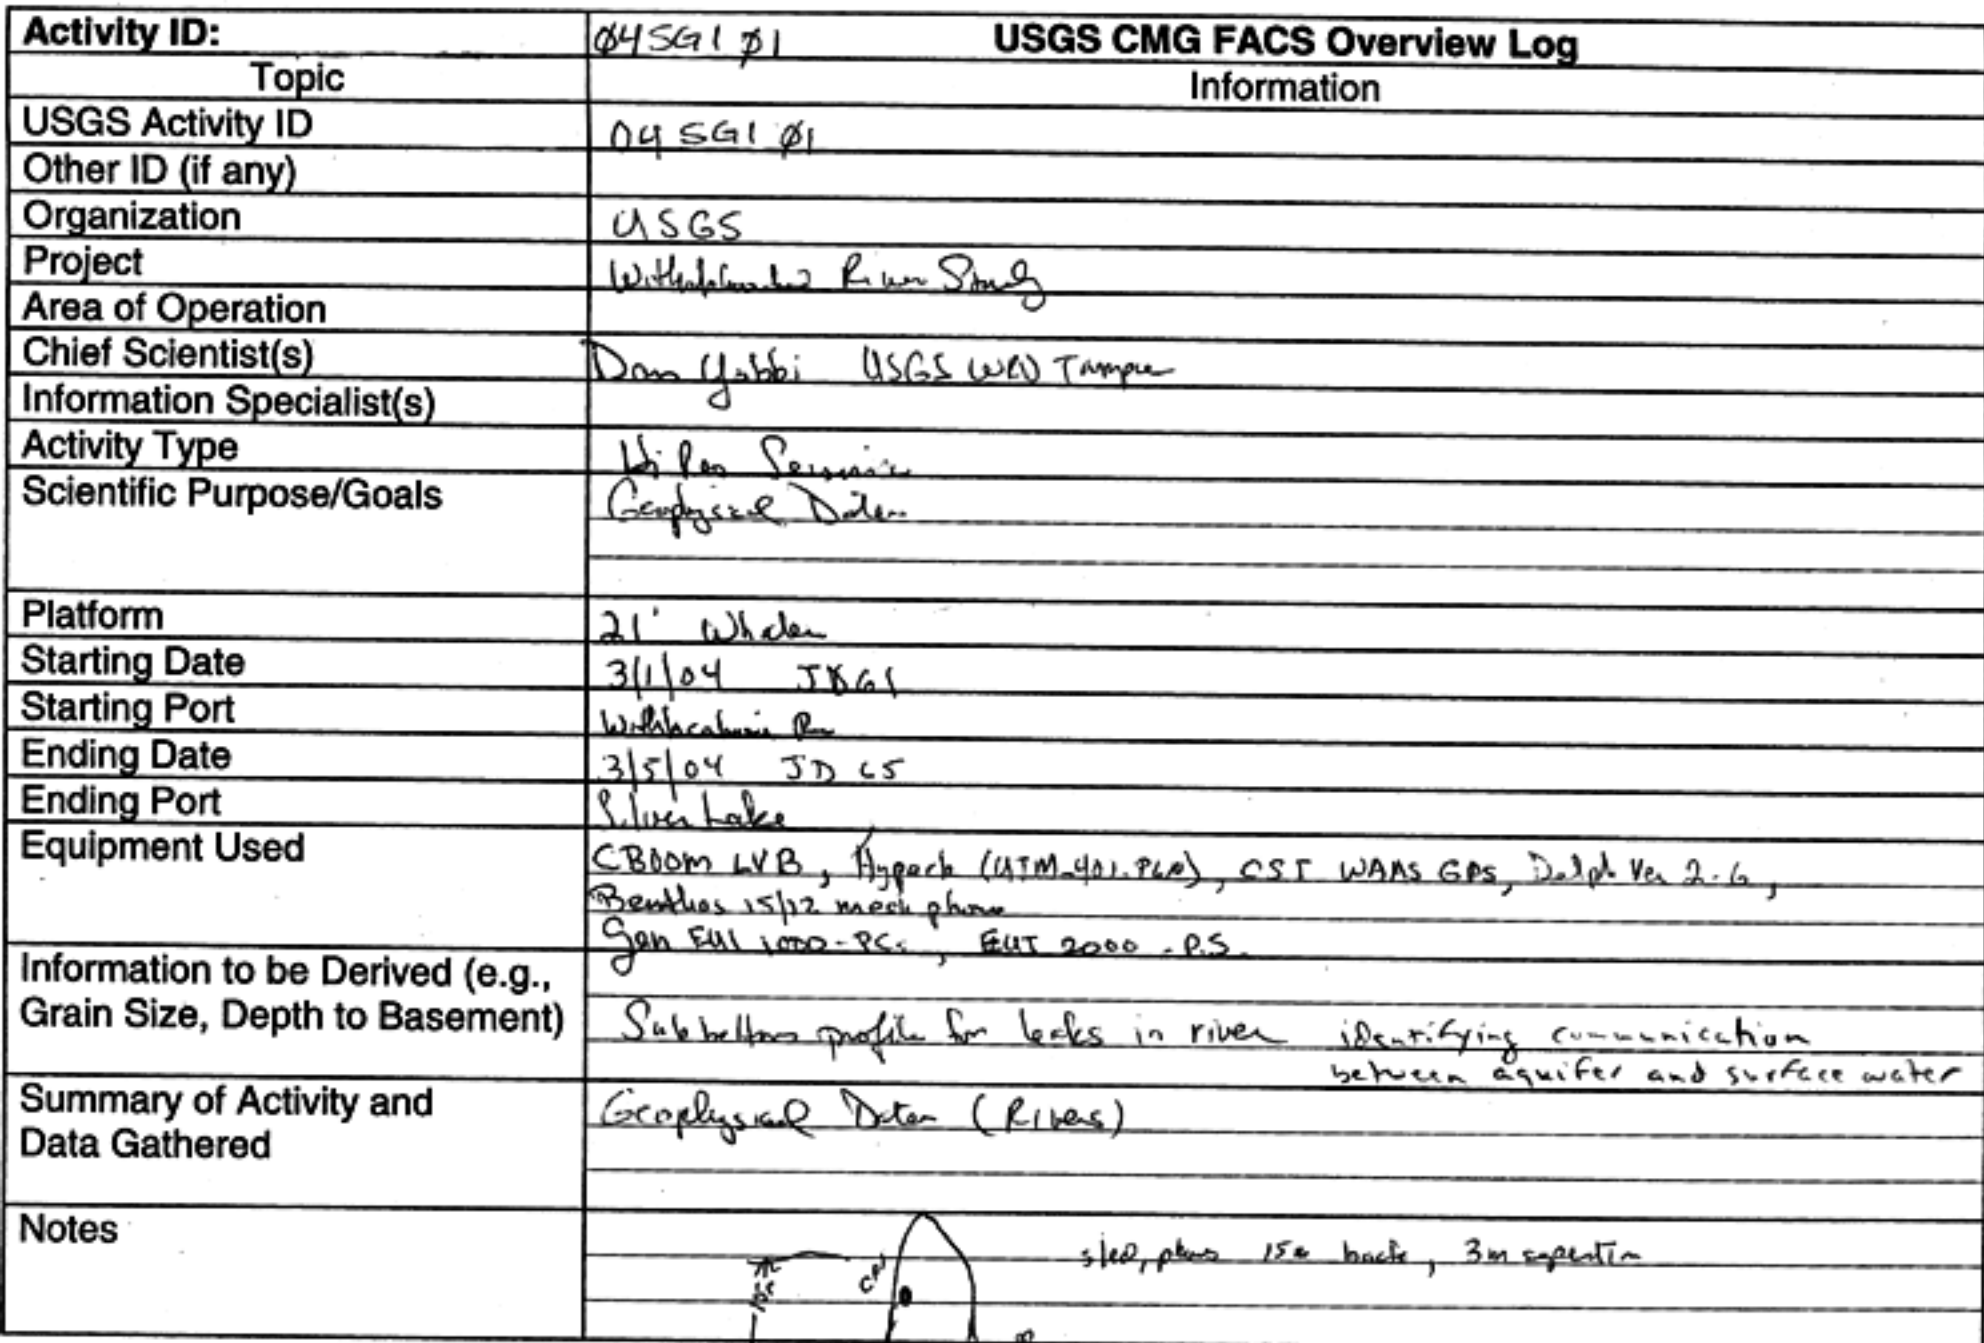 Activity ID: 04SGI01 USGS CMG FACS Overview Log
Topic Information
USGS Activity ID 04SGI01
Other ID (if any)
Organization USGS
Project River Study
Area of Operation
Chief Scientist(s) Dan USGS WRD Tampa
Information Specialist(s)
Activity Type Hi Res Seismic
Scientific Purpose/Goals Geophysical Data
Platform 21' Whaler
Starting Date 3/1/04 JD61
Starting Port
Ending Date 3/5/04 JD 65
Ending Port Silver Lake
Equipment Used CBOOM LVB, Hypack (UTM_401.PLN), CSI WAAS GPS, Delph Ver 2.6,
Benthos 15/12
Gen EUI 1000-PCs, EUI 2000-P.S.
Information to be Derived (e.g.,
Grain Size, Depth to Basement) Subbottom profile for leaks in river identifying communication
between aquifer and surface water
Summary of Activity and Geophysical Data (Rivers)
Data Gathered
Notes sled, back, 3m